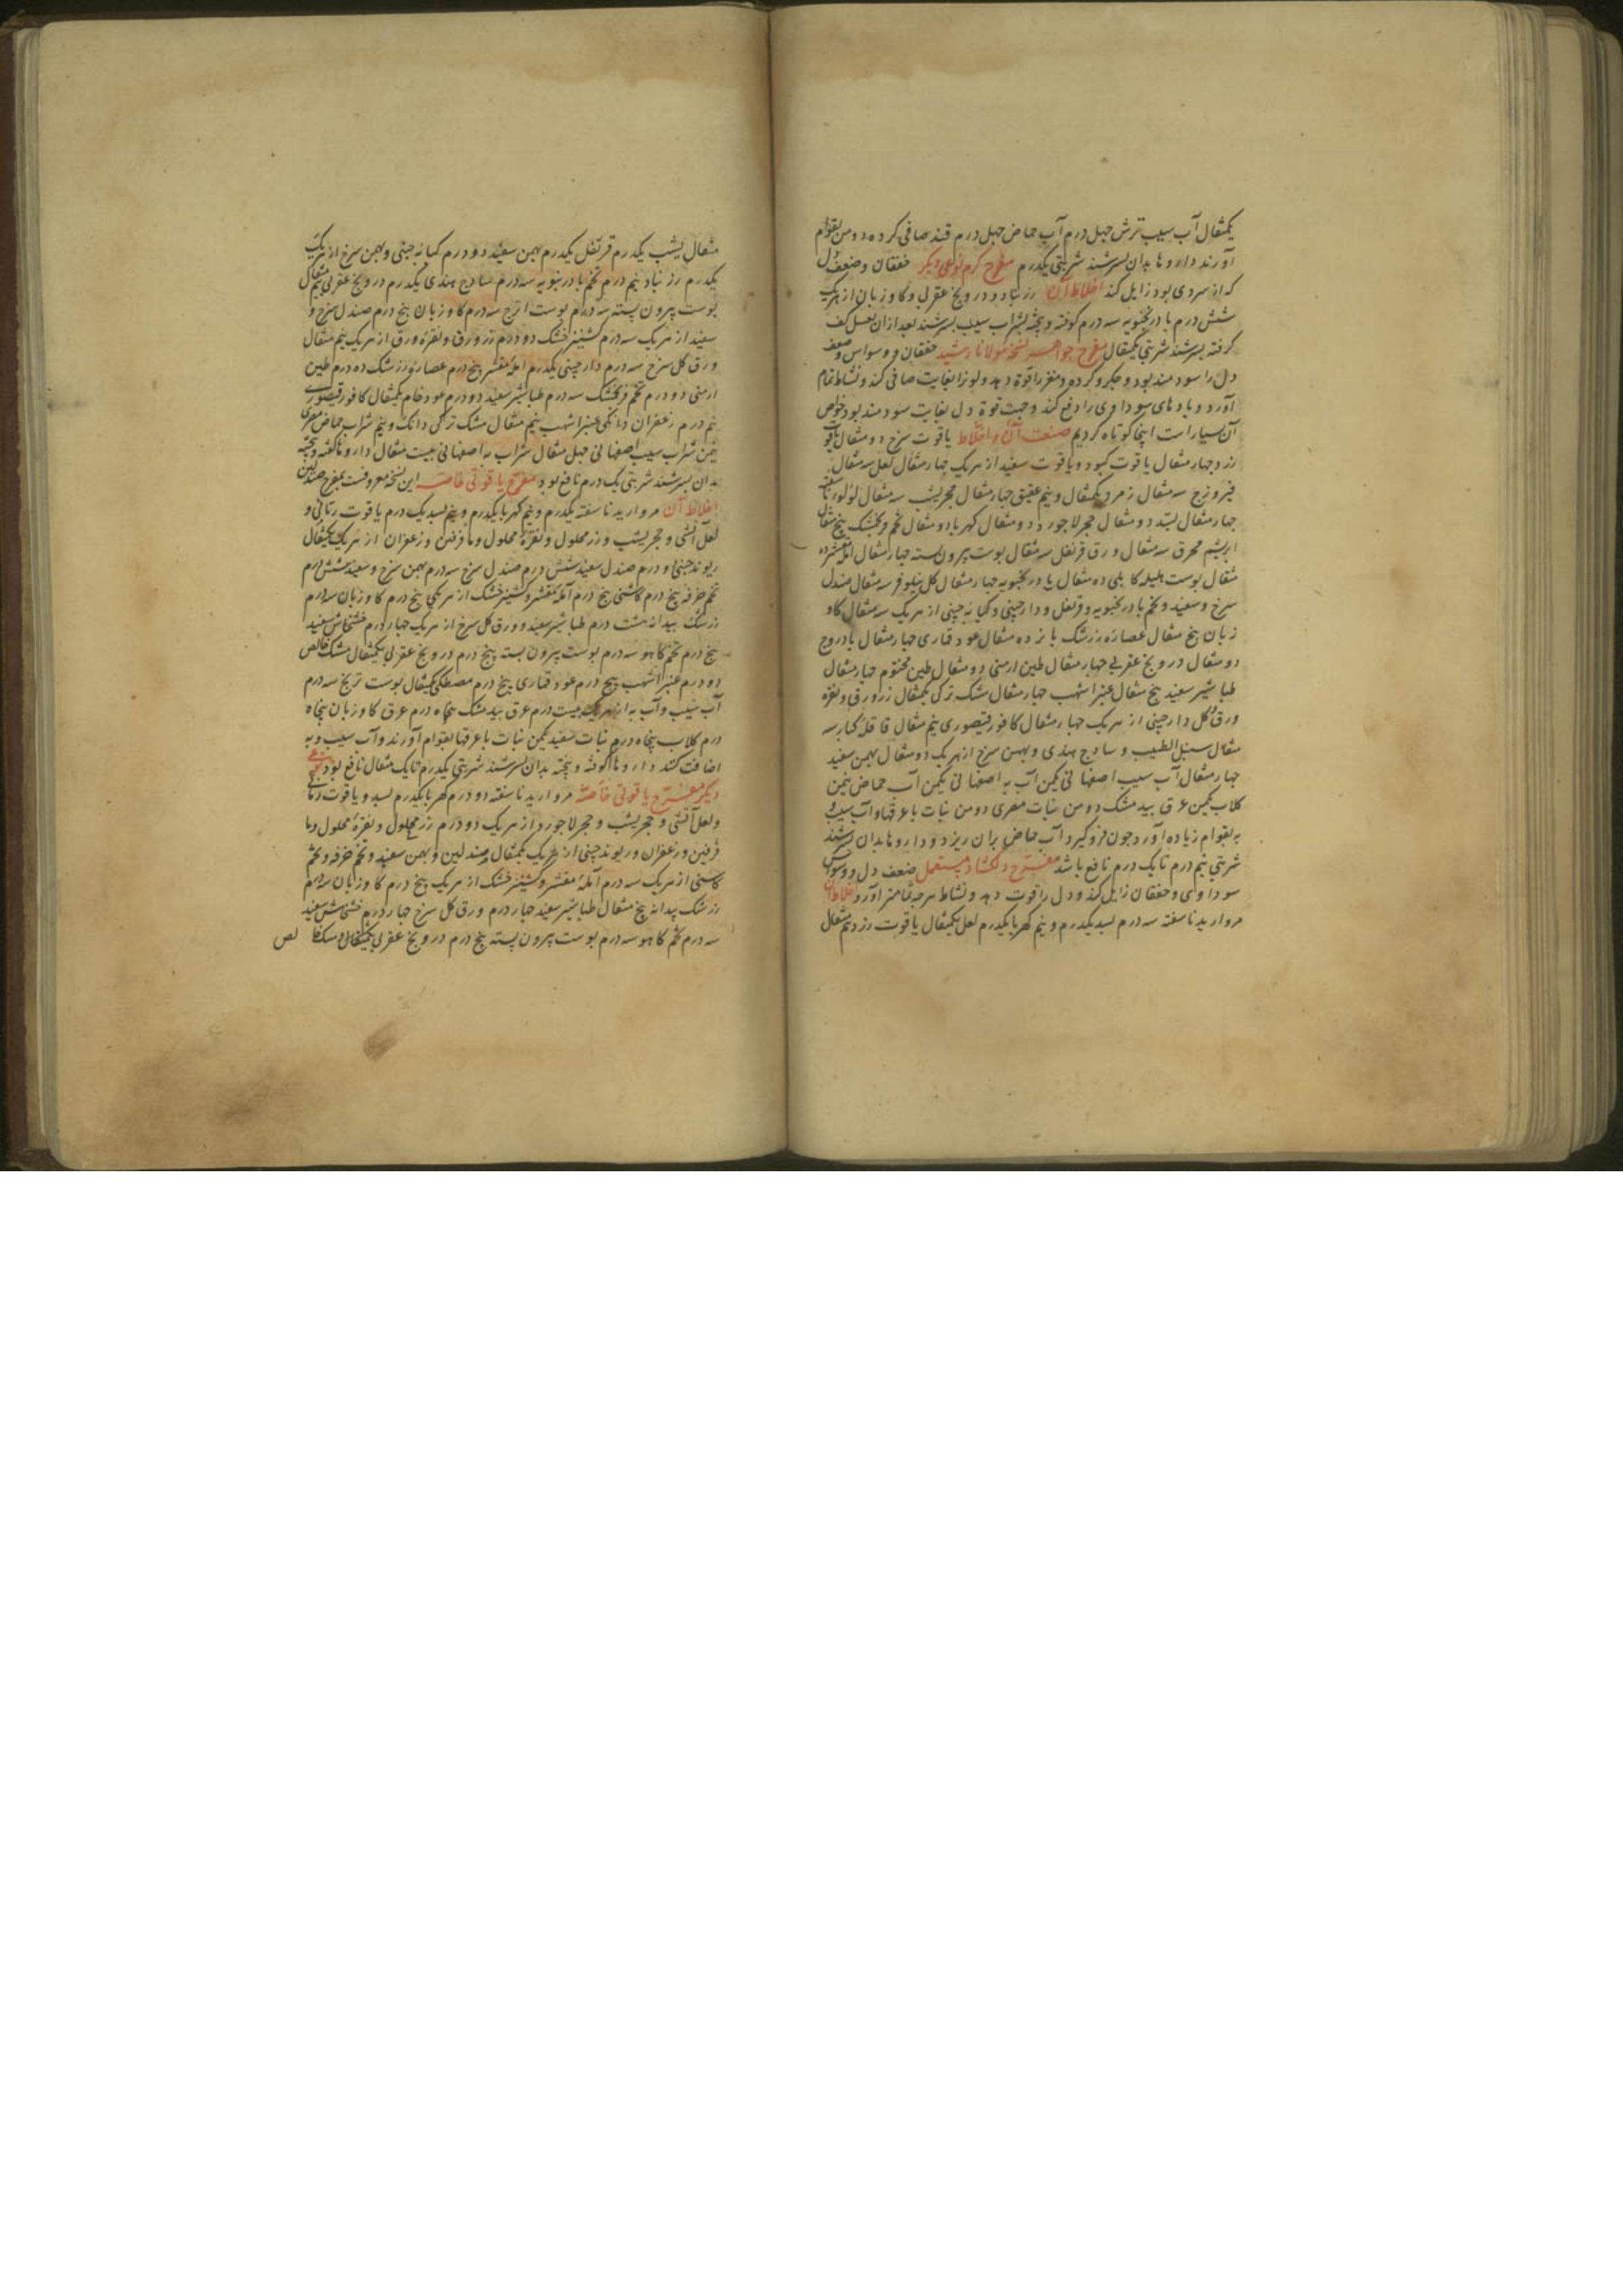 یکمثقال آب سیب ترش چهل درم آب حماض چهل درم قند صافی کرده دو من بقوام
آورند داروها بدان بسرشند شربتی یکدرم مفرح گرم نوعی دیگر خفقان وضعف دل
که از سردی بود زایل کند اخلاط آن زرنباد و درونج عقربی و کاوزبان از هریک
شش درم بادرنجبویه سه درم کوفته و بیخته بشراب سیب بسرشند بعد ازان بعسل کف
کرفته بسرشند شربتی یکمثقال مفرح جواهر نسخه مولانا رشید خفقان و وسواس وضعف
دل را سودمند بود و جکر و کرده و مغز را قوة دهد و لون را بغایت صافی کند و نشاط تمام
آورد و بادهای سوداوی را دفع کند و جهت قوة دل بغایت سودمند بود خواص
آن بسیار است اینجا کوتاه کردیم صنعت آن و اخلاط یاقوت سرخ دو مثقال یاقوت
زرد چهار مثقال یاقوت کبود و یاقوت سفید از هریک چهار مثقال لعل سه مثقال
فیروزج سه مثقال زمرد یکمثقال و نیم عقیق چهار مثقال حجر یشب سه مثقال لؤلؤ ناسفته
چهار مثقال بسد دو مثقال حجر لاجورد دو مثقال کهربا دو مثقال تخم فرنجمشک پنج مثقال
ابریشم محرق سه مثقال ورق قرنفل سه مثقال پوست بیرون پسته چهار مثقال آمله مقشر ده
مثقال پوست هلیله کابلی ده مثقال بادرنجبویه چهار مثقال کل نیلوفر سه مثقال صندل
سرخ و سفید و تخم بادرنجبویه و قرنفل و دارچینی و کبابه چینی از هریک سه مثقال کاو
زبان پنج مثقال عصاره زرشک پانزده مثقال عود قماری چهار مثقال بادروج
دو مثقال درونج عقربی چهار مثقال طین ارمنی دو مثقال طین مختوم چهار مثقال
طباشیر سفید پنج مثقال عنبر اشهب چهار مثقال مشک ترکی یکمثقال زر ورق و نقره
ورق و کل دارچینی از هریک چهار مثقال کافور قیصوری نیم مثقال قاقله کبار سه
مثقال سنبل الطیب و ساذج هندی و بهمن سرخ از هریک دو مثقال بهمن سفید
چهار مثقال آب سیب اصفهانی یکمن آب به اصفهانی یکمن آب حماض نیمن
کلاب یکمن عرق بید مشک دو من نبات مصری دو من نبات با عرقها و آب سیب و
به بقوام زیاده آورد چون فرو کیرد آب حماض بران ریزد و داروها بدان بسرشند
شربتی نیم درم تا یک درم نافع باشد مفرح دلکشاد مستعمل ضعف دل و وسواس
سوداوی و خفقان زایل کند و دل را قوت دهد و نشاط هرچه تمامتر آورد اخلاط آن
مروارید ناسفته سه درم بسد یکدرم و نیم کهربا یکدرم لعل یکمثقال یاقوت زرد نیم مثقال
مثقال یشب یکدرم قرنفل یکدرم بهمن سفید دو درم کبابه چینی و بهمن سرخ از هریک
یکدرم زرنباد نیم درم تخم بادرنبویه سه درم ساذج هندی یکدرم درونج عقربی نیم مثقال
پوست بیرون پسته سه درم پوست اترج سه درم کاوزبان پنج درم صندل سرخ و
سفید از هریک سه درم کشنیز خشک دو درم زر ورق و نقره ورق از هریک نیم مثقال
ورق کل سرخ سه درم دارچینی یکدرم آمله مقشر پنج درم عصاره زرشک ده درم طین
ارمنی دو درم تخم فرنجمشک سه درم طباشیر سفید دو درم عود خام یکمثقال کافور قیصوری
نیم درم زعفران دانکی عنبر اشهب نیم مثقال مشک ترکی دانک و نیم شراب حماض مصری
نیمن شراب سیب اصفهانی چهل مثقال شراب به اصفهانی بیست مثقال داروها کوفته و بیخته
بدان بسرشند شربتی یک درم نافع بود مفرح یاقوتی خاصه این نسخه معروفست بمفرح صندلین
اخلاط آن مروارید ناسفته یکدرم و نیم کهربا یکدرم و نیم بسد یک درم یاقوت رمانی و
لعل آتشی و حجر یشب و زر محلول و نقره محلول و مافرفین و زعفران از هریک یکمثقال
ریوند چینی دو درم صندل سفید شش درم صندل سرخ سه درم بهمن سرخ و سفید شش درم
تخم خرفه پنج درم کاسنی پنج درم آمله مقشر و کشنیز خشک از هریکی پنج درم کاوزبان سه درم
زرشک بیدانه هشت درم طباشیر سفید و ورق کل سرخ از هریک چهار درم خشخاش سفید
پنج درم تخم کاهو سه درم پوست بیرون پسته پنج درم درونج عقربی یکمثقال مشک خالص
دو درم عنبر اشهب پنج درم عود قماری پنج درم مصطکی یکمثقال پوست ترنج سه درم
آب سیب و آب به از هریک بیست درم عرق بید مشک پنجاه درم عرق کاوزبان پنجاه
درم کلاب پنجاه درم نبات سفید یکمن نبات با عرقها بقوام آورند و آب سیب و به
اضافت کنند داروها کوفته و بیخته بدان بسرشند شربتی یکدرم تا یک مثقال نافع بود نوعی
دیکر مفرح یاقوتی خاصه مروارید ناسفته دو درم کهربا یکدرم بسد و یاقوت رمانی
و لعل آتشی و حجر یشب و حجر لاجورد از هریک دو درم زر محلول و نقره محلول وما
فرفین و زعفران و ریوند چینی از هریک یکمثقال صندلین و بهمن سفید و تخم خرفه و تخم
کاسنی از هریک سه درم آمله مقشر و کشنیز خشک از هریک پنج درم کاوزبان سه درم
زرشک بیدانه پنج مثقال طباشیر سفید چهار درم ورق کل سرخ چهار درم خشخاش سفید
سه درم تخم کاهو سه درم پوست بیرون پسته پنج درم درونج عقربی یکمثقال و مشک خالص